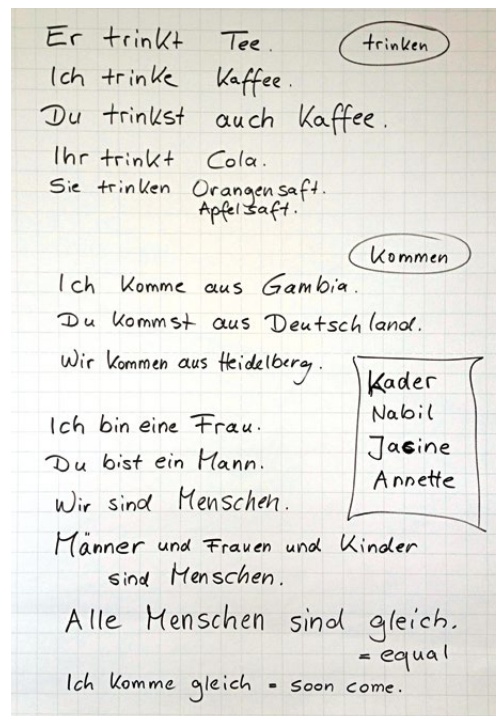 Er trinkt Tee. trinken
Ich trinke Kaffee.
Du trinkst auch Kaffee.
Ihr trinkt Cola.
Sie trinken Orangensaft.
Apfelsaft.
kommen
Ich komme aus Gambia.
Du kommst aus Deutschland.
Wir kommen aus Heidelberg.
Kader
Nabil
Jasine
Annette
Ich bin eine Frau.
Du bist ein Mann.
Wir sind Menschen.
Männer und Frauen und Kinder
sind Menschen.
Alle Menschen sind gleich.
= equal
Ich komme gleich = soon come.